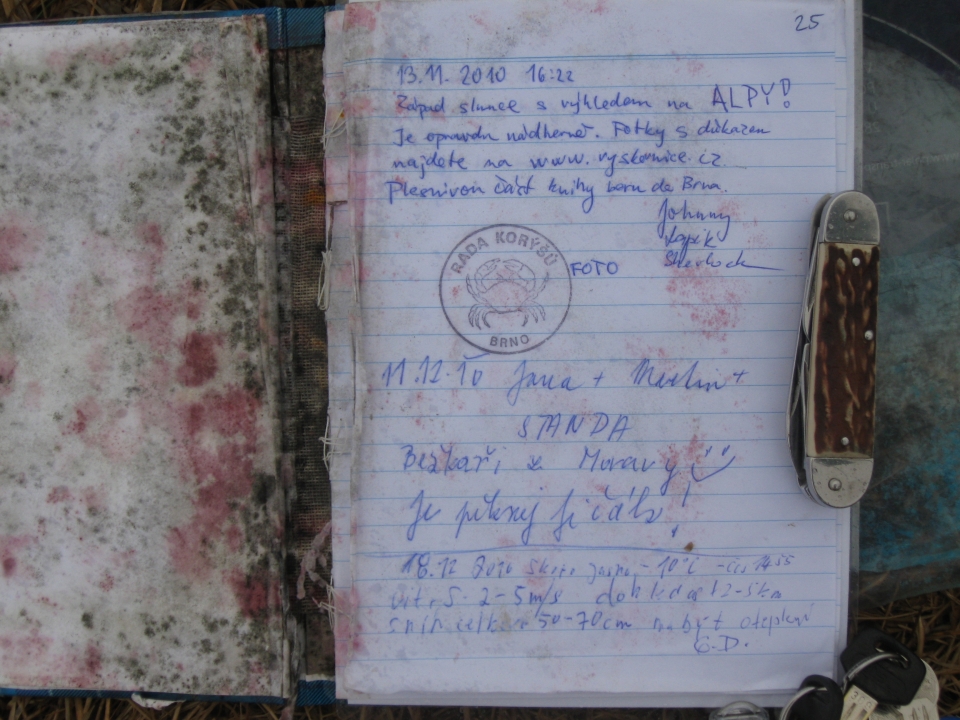 25
13.11. 2010 16:22
Západ slunce s výhledem na ALPY!
Je opravdu nádherné. Fotky s důkazem
najdete na www.vyskovnice.cz
Plesnivou část knihy beru do Brna.
Johnny
Sherlock
RADA KORÝŠŮ
BRNO
FOTO
11.12.10 Jana + Martin +
STANDA
Bezkaři z Moravy
Je pěknej fičák!
18.12 2010 skoro jasno, -10°C
vítr S 2-5m/s
sníh celkem 50-70cm
G.D.